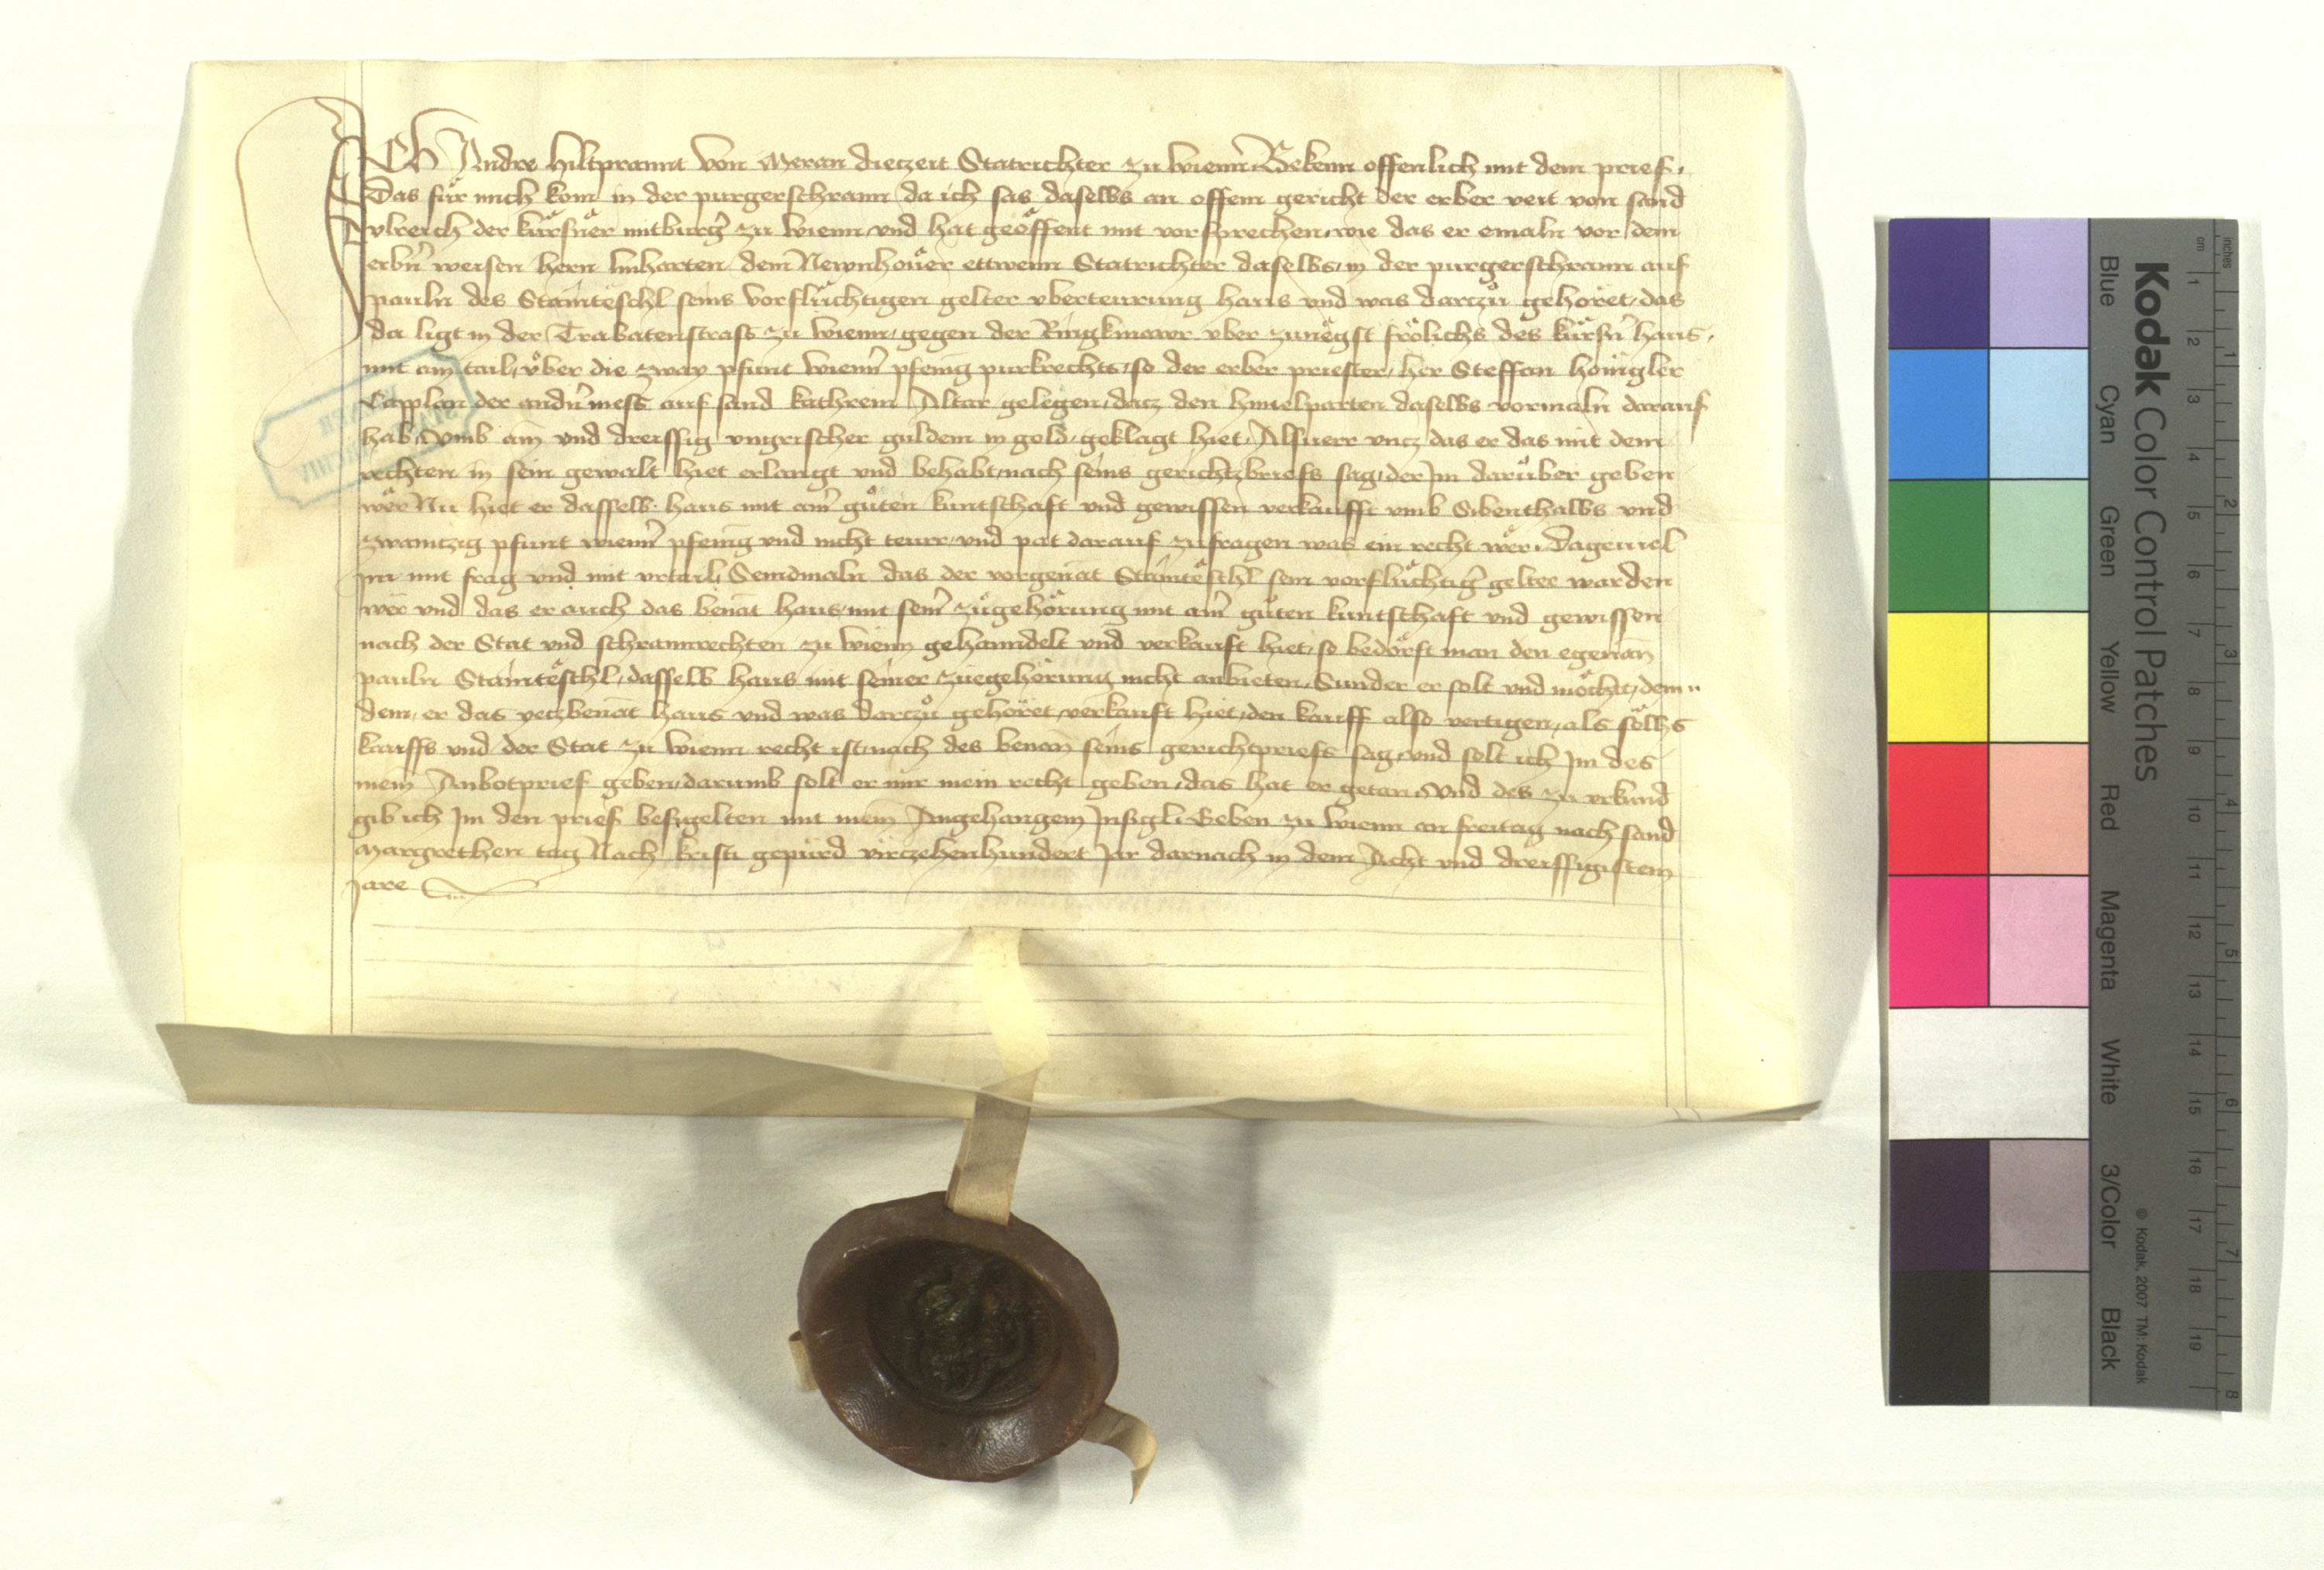 ICh Andre Hiltprannt von Meran diczeit Statrichter zu Wienn Bekenn offenlich mit dem prief,
Das für mich kom in der purgerschrann da ich sas daselbs an offem gericht der erber veit von sand
vlreich der kürsner mitburg̓ zu Wienn vnd hat geöffent mit vorsprechen, wie das er emaln vor dem
erbn̓ weisen hern linharten dem Newnhouer ettwenn Statrichter daselbs, in der purgerschrann auf
pauln des Stainteschl seins vorflüchtigen gelter vberteurung haus vnd was darczů gehöret, das
da ligt in der Trabatenstrass zu wienn, gegen der Ringkmawr vber zunëgst frölichs des kürsn̓ haus,
mit aim tail, vber die zway pfunt wienn̓ pfenig purkrechts, so der erber priester, her Steffan hönigler
Capplan der andn̓ mess auf sand kathrein Altar gelegen, datz den himelparten daselbs vormaln darauf
hab, vmb ain vnd dreissig vngrischer guldein in gold, geklagt hiet, Alsuerr vncz das er das mit dem
rechten in sein gewalt hiet erlangt vnd behabt, nach seins gerichtzbriefs sag, der Im darüber geben
wër Nu hiet er dasselb haus mit aim̓ gůten kuntschaft vnd gewissen verkaufft vmb Sibenthalbs vnd
zwaintzig pfunt wienn̓ pfenig vnd nicht teurr, vnd pat darauf zufragen was ein recht wër, Dageuiel
Im mit frag vnd mit vrtail, Seindmaln das der vorgenāt Stainteschl sein vorflüchtig̓ gelter warden
wër vnd das er auch das benāt haus, mit seim̓ zůgehörung mit aim̓ gůten kuntschaft vnd gewissen
nach der Stat vnd schrannrechten zu wienn gehanndelt vnd verkauft hiet, so bedörft man den egenān
pauln Stainteschl, dasselb haus mit seiner zůegehörung nicht anbieten, Sunder er solt vnd möcht, dem
dem, er das yetzbenāt haus vnd was darczů gehöret, verkauft hiet, den kauff also vertigen, als sölhs
kauffs vnd der Stat zu wienn recht ist, nach des benān seins gerichtpriefs sag, vnd solt ich Im des
mein Anbotprief geben, darumb solt er mir mein recht geben, das hat er getan, vnd des zu vrkund
gib ich Im den prief besigelten mit meim̄ Angehangem Insigl, Geben zu Wienn an freitag nach sand
Margrethen tag Nach kristi gepurd virczehenhundert Jar darnach in dem Acht vnd dreissigistem
Jare
Kodak Color Control Patches
Blue Cyan Green Yellow Red Magenta White 3/Color Black
© Kodak, 2007 TM: Kodak
cm 1 2 3 4 5 6 7 8 9 10 11 12 13 14 15 16 17 18 19
inches 1 2 3 4 5 6 7 8